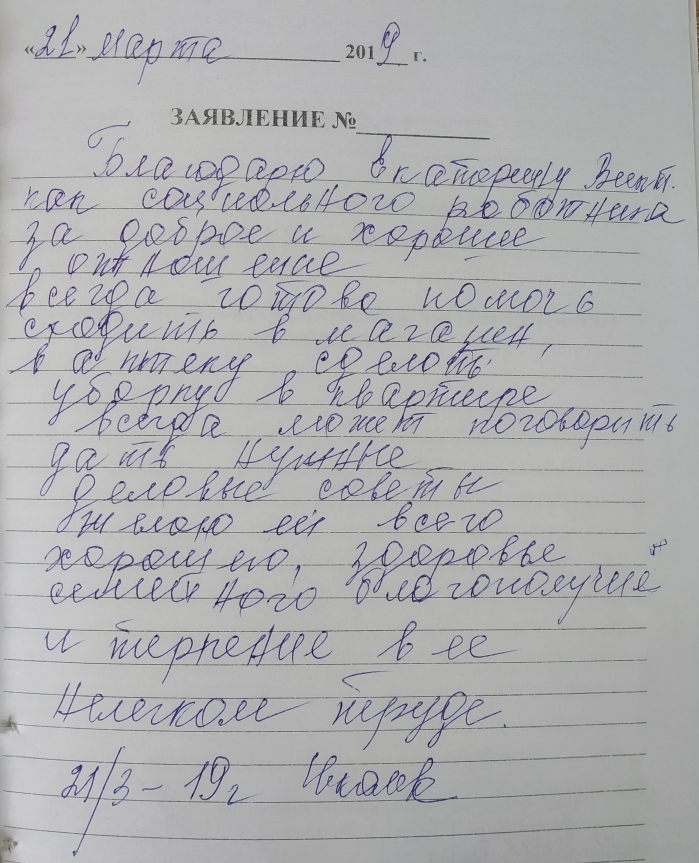 «21» марта 2019 г.
ЗАЯВЛЕНИЕ №
Благодарю Екатерину Викт.
как социального работника
за доброе и хорошие
отношение
всегда готова помочь
сходить в магазин,
в аптеку сделать
уборку в квартире
всегда может поговорить
дать нужные
деловые советы
желаю ей всего
хорошего, здоровье
семейного благополучие
и терпение в ее
нелегком труде.
21/3 - 19 г